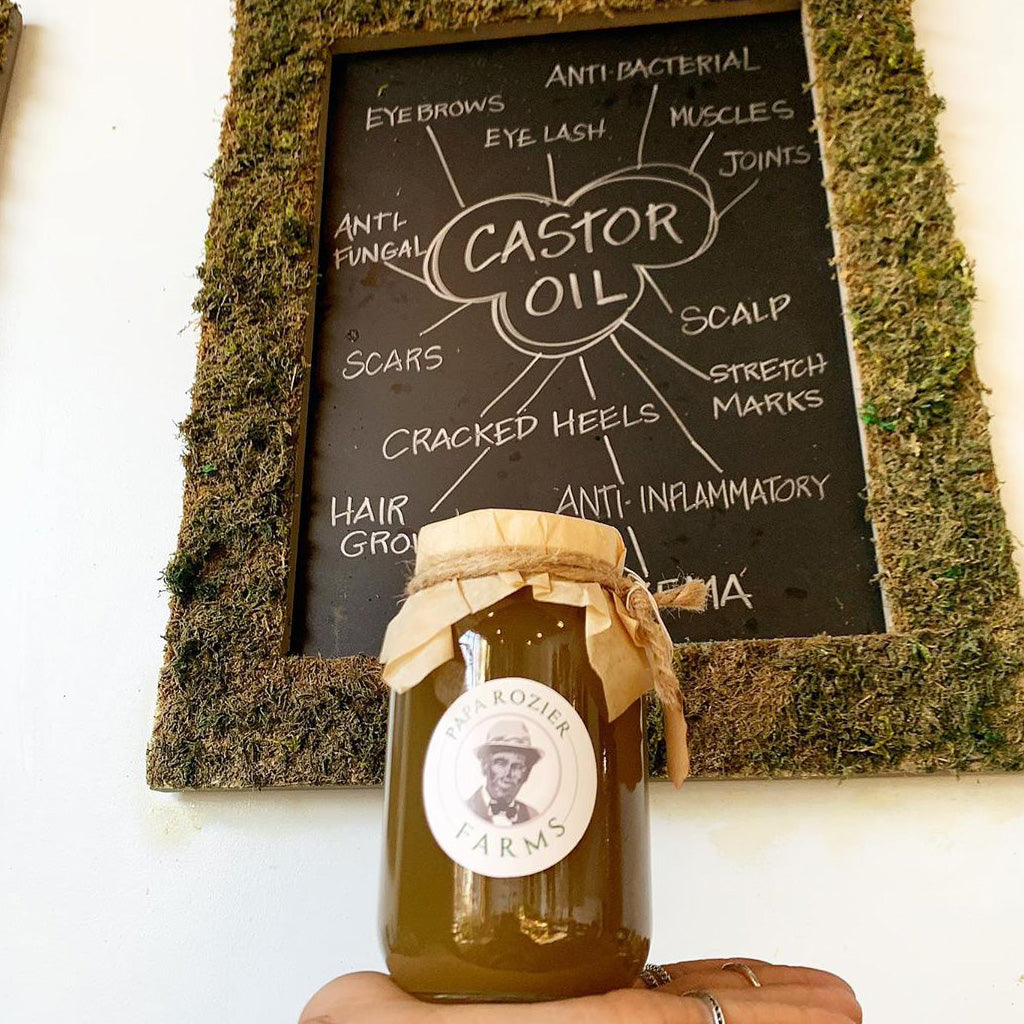 ANTI-BACTERIAL
EYEBROWS
EYE LASH
MUSCLES
JOINTS
ANTI-
FUNGAL
CASTOR
OIL
SCALP
SCARS
STRETCH
MARKS
CRACKED HEELS
HAIR
ANTI-INFLAMMATORY
PAPA ROZIER
FARMS